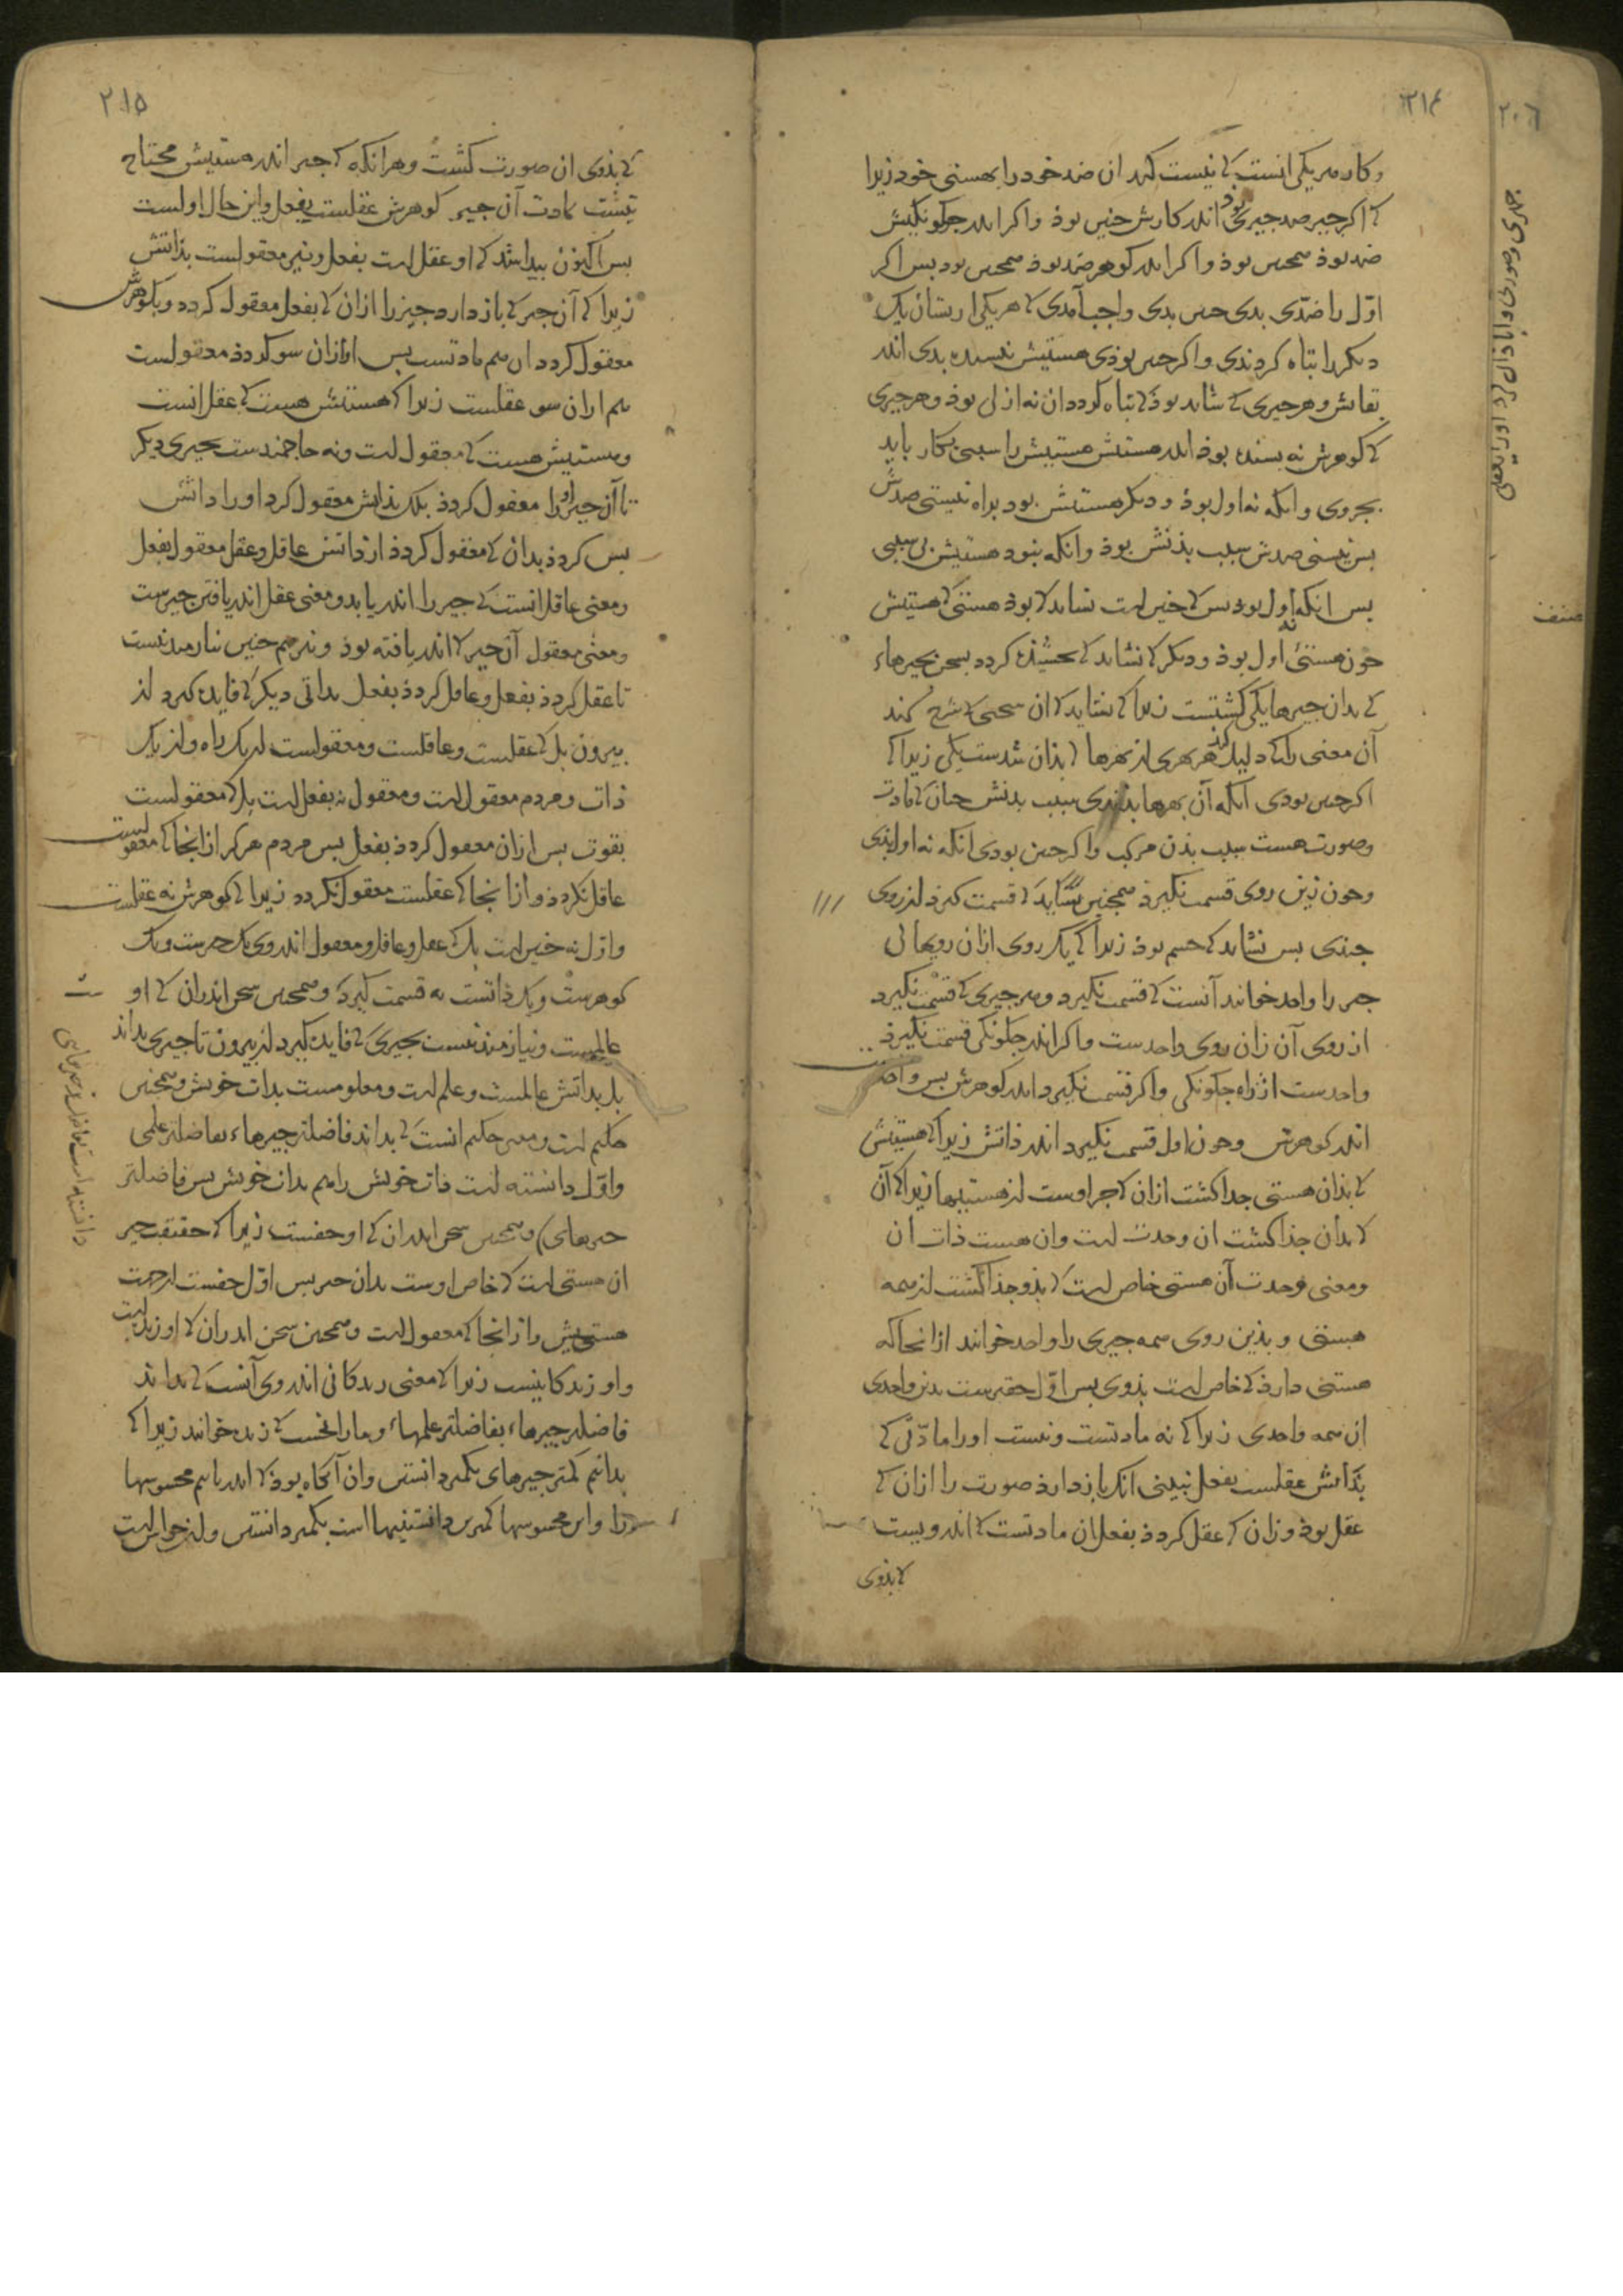 ٢١٤
و کار هر یکی انست کی نیست کند ان ضد خود را بهستی خود زیرا
کی اگر جیز ضد جیزی بود اندر کارش جنین بوذ و اکر اندر جکونکیش
ضد بوذ همجنین بوذ و اکر اندر کوهر ضد بوذ همجنین بود بس اکر
اوّل را ضدّی بدی جنین بدی واجب آمدی کی هر یکی ازیشان یک
دیکر را تباه کردندی و اکر جنین بوذی هستیش بسنده بدی اندر
بقایش و هر جیزی کی شاید بوذ کی تباه کردد ان نه ازلی بوذ و هر جیزی
کی کوهرش نه بسنده بوذ اندر هستیش هستیش را سببی بکار باید
بجز وی و انکه نه اول بوذ و دیکر هستیش بود براه نیستی ضدش
بس نیستی ضدش سبب بذنش بوذ و انکه نبود هستیش بی سببی
بس انکه نه اول بود بس کی جنین است نشاید کی بوذ هستی کی هستیش
جون هستی اول بوذ و دیکر کی نشاید کی بخشیده کردد بسخن بجیزهاء
کی بدان جیزها یکی کشتست زیرا کی نشاید کی ان سخنی کی شرح کند
آن معنی را کی دلیل کند هر بهری از بهرها کی بذان شدست یکی زیرا کی
اکر جنین بودی انکه آن بهرها بذندی سبب بدنش جنان کی مادت
و صورت هست سبب بذن مرکب و اکر جنین بودی انکه نه اول بذی
و جون زین روی قسمت نکیرذ همجنین نشاید کی قسمت کیرد از روی
جندی بس نشاید کی جسم بوذ زیرا کی یک روی ازان رویها کی
جیز را واحد خوانند آنست کی قسمت نکیرد و هر جیزی کی قسمت نکیرد
از روی آن زان روی واحدست و اکر اندر جکونکی قسمت نکیرد
واحدست از راه جکونکی و اکر قسمت نکیرد اندر کوهرش بس واحدست
اندر کوهرش و جون اول قسمت نکیرد اندر ذاتش زیرا کی هستیش
کی بذان هستی جدا کشت ازان کی جز اوست از هستیها زیرا کی آن
کی بدان جذا کشت ان وحدت است وان هست ذات ان
و معنی وحدت آن هستی خاص است کی بذو جذا کشت از همه
هستی و بذین روی همه جیزی را واحد خوانند از انجا که
هستی دارذ کی خاص است بذوی بس اوّل حقترست بدین واحدی
از همه واحدی زیرا کی نه مادتست و نیست او را مادّتی کی
بذاتش عقلست بفعل نبینی انکه باز دارذ صورت را ازان کی
عقل بوذ و زان کی عقل کردذ بفعل ان مادتست کی اندرویست
کی بذوی
٢١٥
کی بذوی ان صورت کشت و هرانکه کی جیز اندر هستیش محتاج
نیست بمادت آن جیز کوهرش عقلست بفعل و این حال اولست
بس اکنون بیدا شد کی او عقل است بفعل و نیز معقولست بذاتش
زیرا کی آن جیز کی باز دارد جیز را ازان کی بفعل معقول کردد و بکوهرش
معقول کردد ان هم مادتست بس او ازان سو کی مجردذ معقولست
هم ازان سو عقلست زیرا کی هستیش هست کی عقل انست
و هستیش هست کی معقول است و نه حاجتمندست بجیزی دیکر
تا آن جیز او را معقول کردذ بلک بذاتش معقول کرد او را ذاتش
بس کردذ بدان کی معقول کردذ از ذاتش عاقل و عقل معقول بفعل
و معنی عاقل انست کی جیز را اندر یابد و معنی عقل اندر یافتن جیزست
و معنی معقول آن جیز کی اندر یافته بوذ و نیز هم جنین نیازمند نیست
تا عقل کردذ بفعل و عاقل کردذ بفعل بداتی دیکر کی فایده کیرد از
بیرون بل کی عقلست و عاقلست و معقولست از یک راه و از یک
ذات و مردم معقول است و معقول نه بفعل است بل کی معقولست
بقوت بس ازان معقول کردذ بفعل بس مردم هرکز از انجا کی معقولست
عاقل نکردذ و از انجا کی عقلست معقول نکردد زیرا کی کوهرش نه عقلست
و اوّل نه جنین است بل کی عقل و عاقل و معقول اندروی یک جیزست و یک
کوهرست و یک ذاتست نه قسمت کیرد و همجنین سخن اندران کی او
عالمست و نیازمند نیست بجیزی کی فایده کیرد از بیرون تا جیزی بداند
بل بداتش عالمست و علم است و معلومست بدات خویش و همجنین
حکیم است و معنی حکیم انست کی بداند فاضلتر جیزهاء بفاضلتر علمی
و اوّل دانسته است ذات خویش را هم بدات خویش بس فاضلتر
جیزهای و همجنین سخن اندران کی او حقست زیرا کی حقیقت جیز
ان هستی است کی خاص اوست بدان جیز بس اوّل حقست از جهت
هستیش و از انجا کی معقول است و همجنین سخن اندران کی او زنده است
و او زندکانیست زیرا کی معنی زندکانی اندروی آنست کی بداند
فاضلتر جیزهاء بفاضلتر علمهاء و ما را نخست کی زنده خوانند زیرا کی
بدانیم کمتر جیزهای بکمتر دانستن وان آنکاه بوذ کی اندر یابیم محسوسها
را و این محسوسها کمترین دانستنیها است بکمتر دانستن و از حواس است